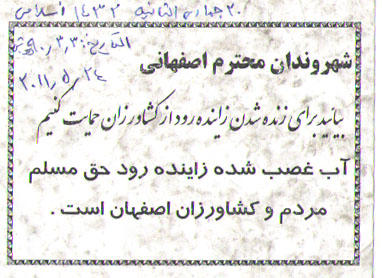 ۲۰ جمادی الثانیه ۱۴۳۲
التاریخ: ۳ر۳ر۹۰
۲۰۱۱ر۵ر۲۴
شهروندان محترم اصفهانی
بیائید برای زنده شدن زاینده رود از کشاورزان حمایت کنیم
آب غصب شده زاینده رود حق مسلم
مردم و کشاورزان اصفهان است .